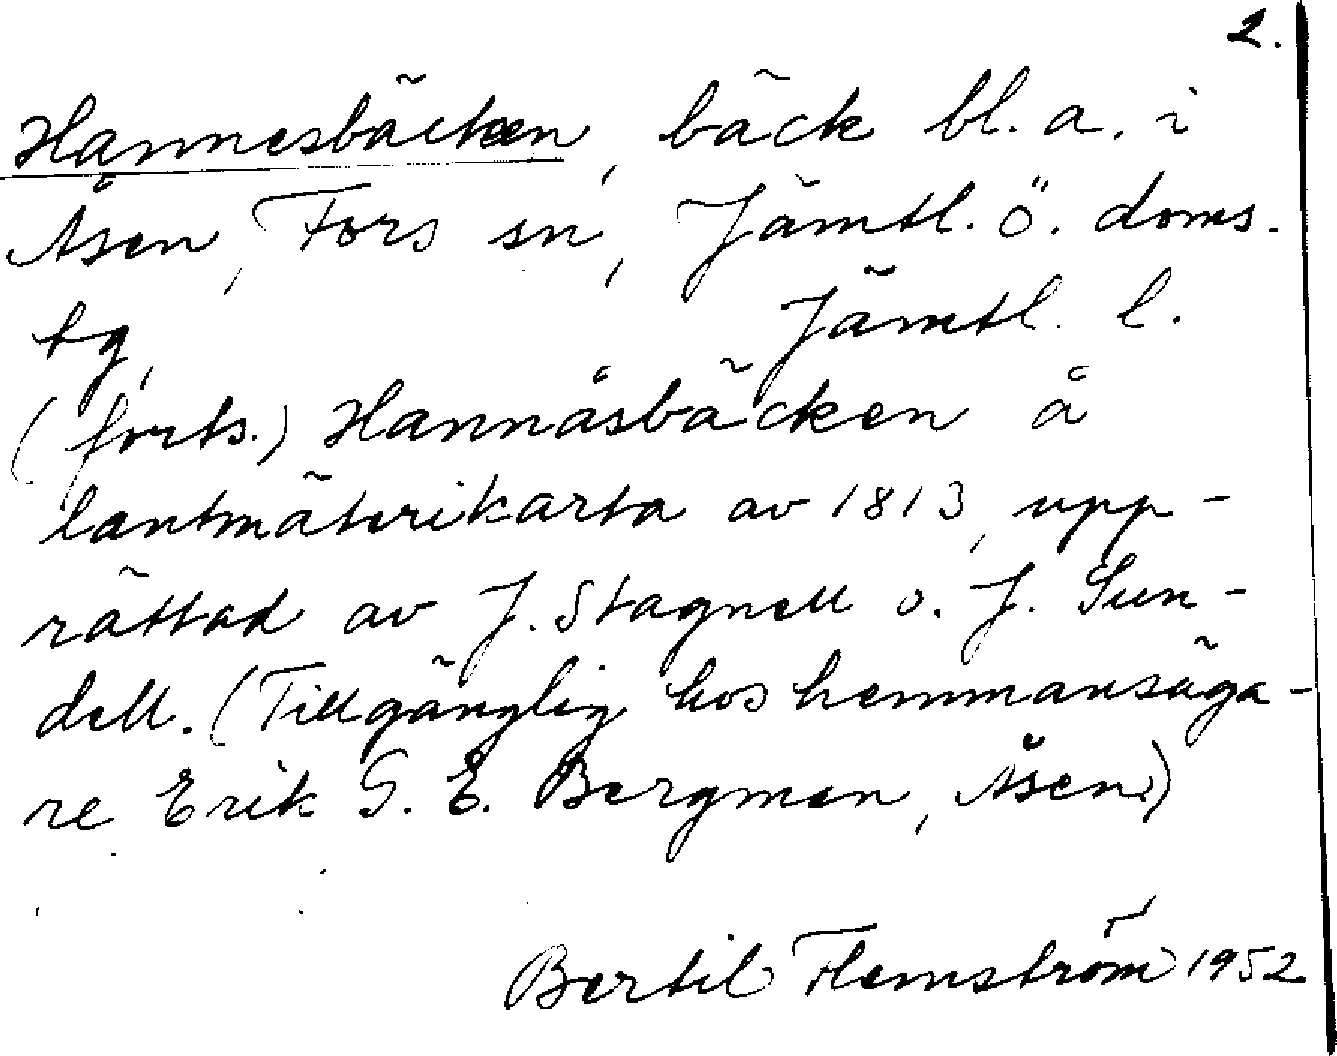 2.
Hannesbäcken, bäck bl. a. i
Åsen, Fors sn, Jämtl. ö. doms.
tg,
Jämtl. l.
(forts.) Hannåsbäcken å
lantmäterikarta av 1813, upp-
rättad av J. Stagnell o. J. Sun-
dell. (Tillgänglig hos hemmansäga-
re Erik G. E. Bergman, Åsen.)
Bertil Flemström 1952